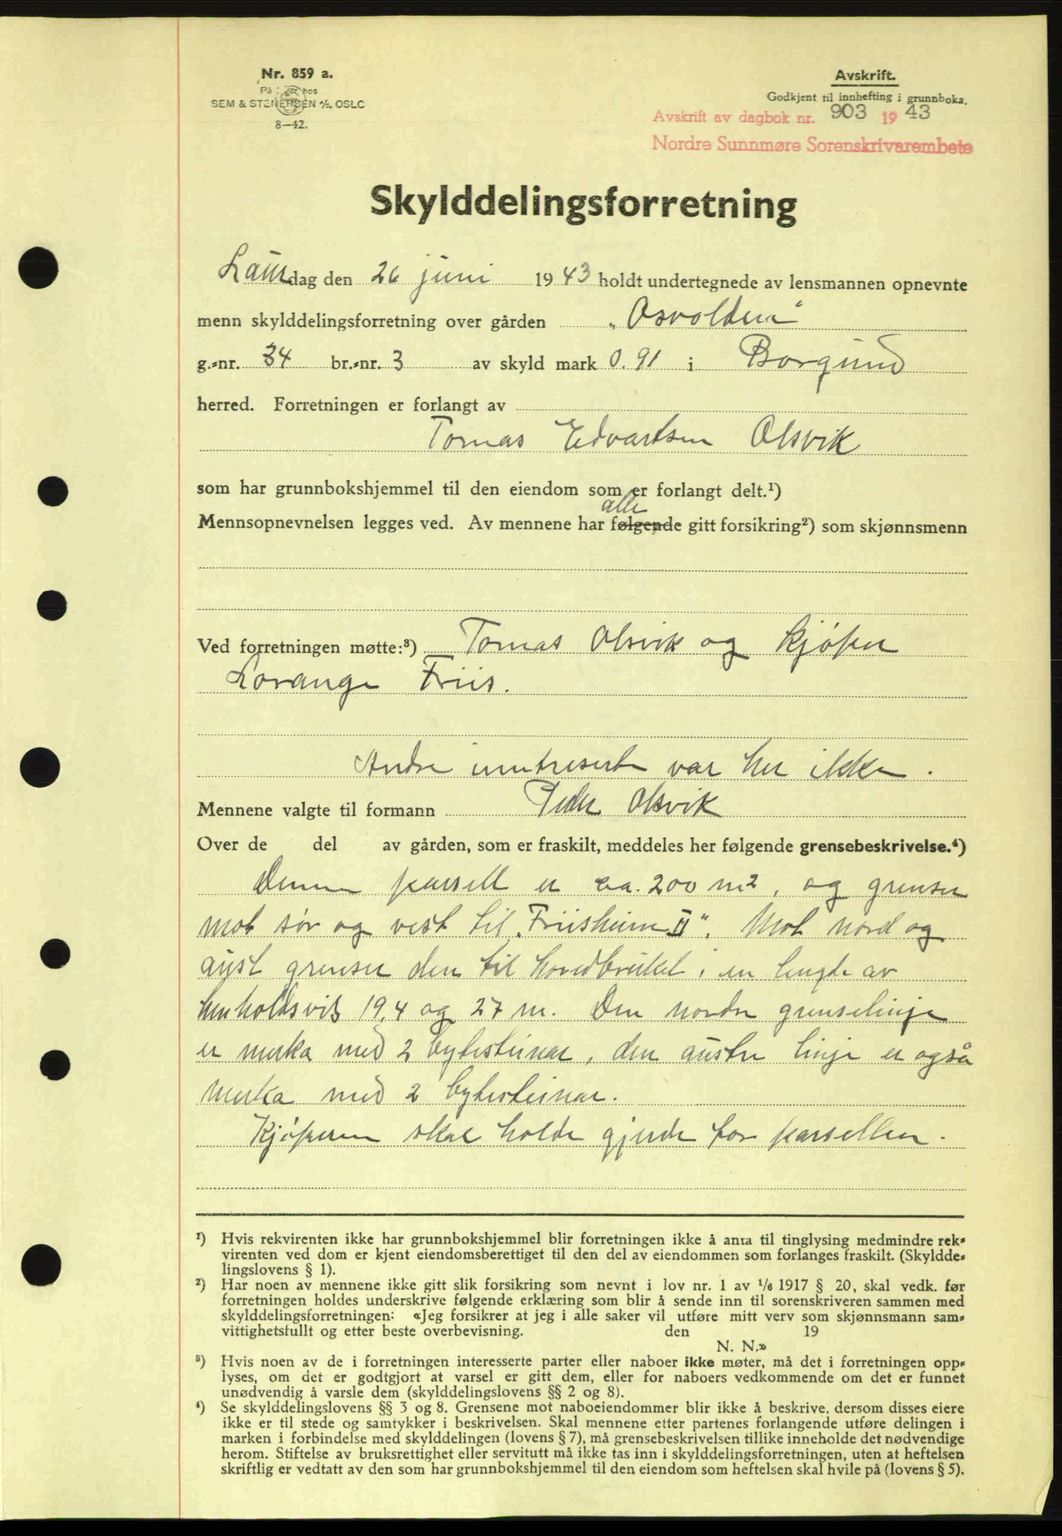 Nr. 859 a.
På
hos
SEM & STENERSEN A/S, OSLO
8—42.
Avskrift.
Godkjent til innhefting i grunnboka.
Avskrift av dagbok nr. 903 1943
Nordre Sunnmøre Sorenskrivarembete
Skylddelingsforretning
Laurdag den 26 juni 1943 holdt undertegnede av lensmannen opnevnte
menn skylddelingsforretning over gården „Osvolden“
g.-nr. 34 br.-nr. 3 av skyld mark 0.91 i Borgund
herred. Forretningen er forlangt av
Tomas Edvartsen Olsvik
som har grunnbokshjemmel til den eiendom som er forlangt delt.¹)
alle
Mennsopnevnelsen legges ved. Av mennene har følgende gitt forsikring²) som skjønnsmenn
Ved forretningen møtte:³) Tomas Olsvik og kjøper
Lorange Friis.
Andre inntreserte var her ikke.
Mennene valgte til formann Peder Olsvik
Over de del av gården, som er fraskilt, meddeles her følgende grensebeskrivelse.⁴)
Denne parsell er ca. 200 m², og grenser
mot sør og vest til „Friisheim II“. Mot nord og
aust grenser den til hovedbruket i en lengde av
henholdsvis 19,4 og 27 m. Den nordre grenselinje
er merka med 2 bytesteinar, den austre linje er også
merka med 2 bytesteinar.
Kjøperen skal holde gjerde for parsellen.
¹) Hvis rekvirenten ikke har grunnbokshjemmel blir forretningen ikke å anta til tinglysing medmindre rek-
virenten ved dom er kjent eiendomsberettiget til den del av eiendommen som forlanges fraskilt. (Skyldde-
lingslovens § 1).
²) Har noen av mennene ikke gitt slik forsikring som nevnt i lov nr. 1 av 1/6 1917 § 20, skal vedk. før
forretningen holdes underskrive følgende erklæring som blir å sende inn til sorenskriveren sammen med
skylddelingsforretningen: «Jeg forsikrer at jeg i alle saker vil utføre mitt verv som skjønnsmann sam-
vittighetsfullt og etter beste overbevisning. den 19
N. N.»
³) Hvis noen av de i forretningen interesserte parter eller naboer ikke møter, må det i forretningen opp-
lyses, om det er godtgjort at varsel er gitt dem, eller for naboers vedkommende om det er funnet
unødvendig å varsle dem (skylddelingslovens §§ 2 og 8).
⁴) Se skylddelingslovens §§ 3 og 8. Grensene mot naboeiendommer blir ikke å beskrive, dersom disses eiere
ikke er til stede og samtykker i beskrivelsen. Skal mennene etter partenes forlangende utføre delingen i
marken i forbindelse med skylddelingen (lovens § 7), må grensebeskrivelsen tillike inneholde det nødvendige
herom. Stiftelse av bruksrettighet eller servitutt må ikke tas inn i skylddelingsforretningen, uten at heftelsen
skriftlig er vedtatt av den som har grunnbokshjemmel til den eiendom som heftelsen skal hvile på (lovens § 5).